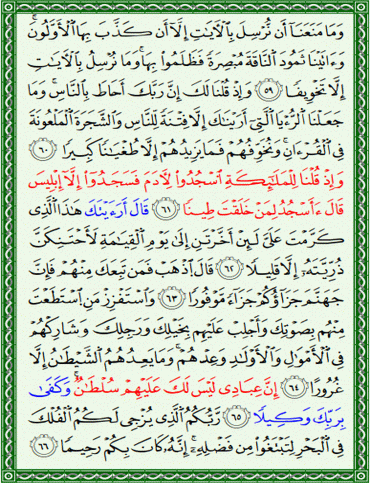 وَمَا مَنَعَنَآ أَن نُّرۡسِلَ بِٱلۡأٓيَٰتِ إِلَّآ أَن كَذَّبَ بِهَا ٱلۡأَوَّلُونَۚ
وَءَاتَيۡنَا ثَمُودَ ٱلنَّاقَةَ مُبۡصِرَةٗ فَظَلَمُواْ بِهَاۚ وَمَا نُرۡسِلُ بِٱلۡأٓيَٰتِ
إِلَّا تَخۡوِيفٗا ٥٩ وَإِذۡ قُلۡنَا لَكَ إِنَّ رَبَّكَ أَحَاطَ بِٱلنَّاسِۚ وَمَا
جَعَلۡنَا ٱلرُّءۡيَا ٱلَّتِيٓ أَرَيۡنَٰكَ إِلَّا فِتۡنَةٗ لِّلنَّاسِ وَٱلشَّجَرَةَ ٱلۡمَلۡعُونَةَ
فِي ٱلۡقُرۡءَانِۚ وَنُخَوِّفُهُمۡ فَمَا يَزِيدُهُمۡ إِلَّا طُغۡيَٰنٗا كَبِيرٗا ٦٠
وَإِذۡ قُلۡنَا لِلۡمَلَٰٓئِكَةِ ٱسۡجُدُواْ لِأٓدَمَ فَسَجَدُوٓاْ إِلَّآ إِبۡلِيسَ
قَالَ ءَأَسۡجُدُ لِمَنۡ خَلَقۡتَ طِينٗا ٦١ قَالَ أَرَءَيۡتَكَ هَٰذَا ٱلَّذِي
كَرَّمۡتَ عَلَيَّ لَئِنۡ أَخَّرۡتَنِ إِلَىٰ يَوۡمِ ٱلۡقِيَٰمَةِ لَأَحۡتَنِكَنَّ
ذُرِّيَّتَهُۥٓ إِلَّا قَلِيلٗا ٦٢ قَالَ ٱذۡهَبۡ فَمَن تَبِعَكَ مِنۡهُمۡ فَإِنَّ
جَهَنَّمَ جَزَآؤُكُمۡ جَزَآءٗ مَّوۡفُورٗا ٦٣ وَٱسۡتَفۡزِزۡ مَنِ ٱسۡتَطَعۡتَ
مِنۡهُم بِصَوۡتِكَ وَأَجۡلِبۡ عَلَيۡهِم بِخَيۡلِكَ وَرَجِلِكَ وَشَارِكۡهُمۡ
فِي ٱلۡأَمۡوَٰلِ وَٱلۡأَوۡلَٰدِ وَعِدۡهُمۡۚ وَمَا يَعِدُهُمُ ٱلشَّيۡطَٰنُ إِلَّا
غُرُورًا ٦٤ إِنَّ عِبَادِي لَيۡسَ لَكَ عَلَيۡهِمۡ سُلۡطَٰنٞۚ وَكَفَىٰ
بِرَبِّكَ وَكِيلٗا ٦٥ رَّبُّكُمُ ٱلَّذِي يُزۡجِي لَكُمُ ٱلۡفُلۡكَ
فِي ٱلۡبَحۡرِ لِتَبۡتَغُواْ مِن فَضۡلِهِۦٓۚ إِنَّهُۥ كَانَ بِكُمۡ رَحِيمٗا ٦٦